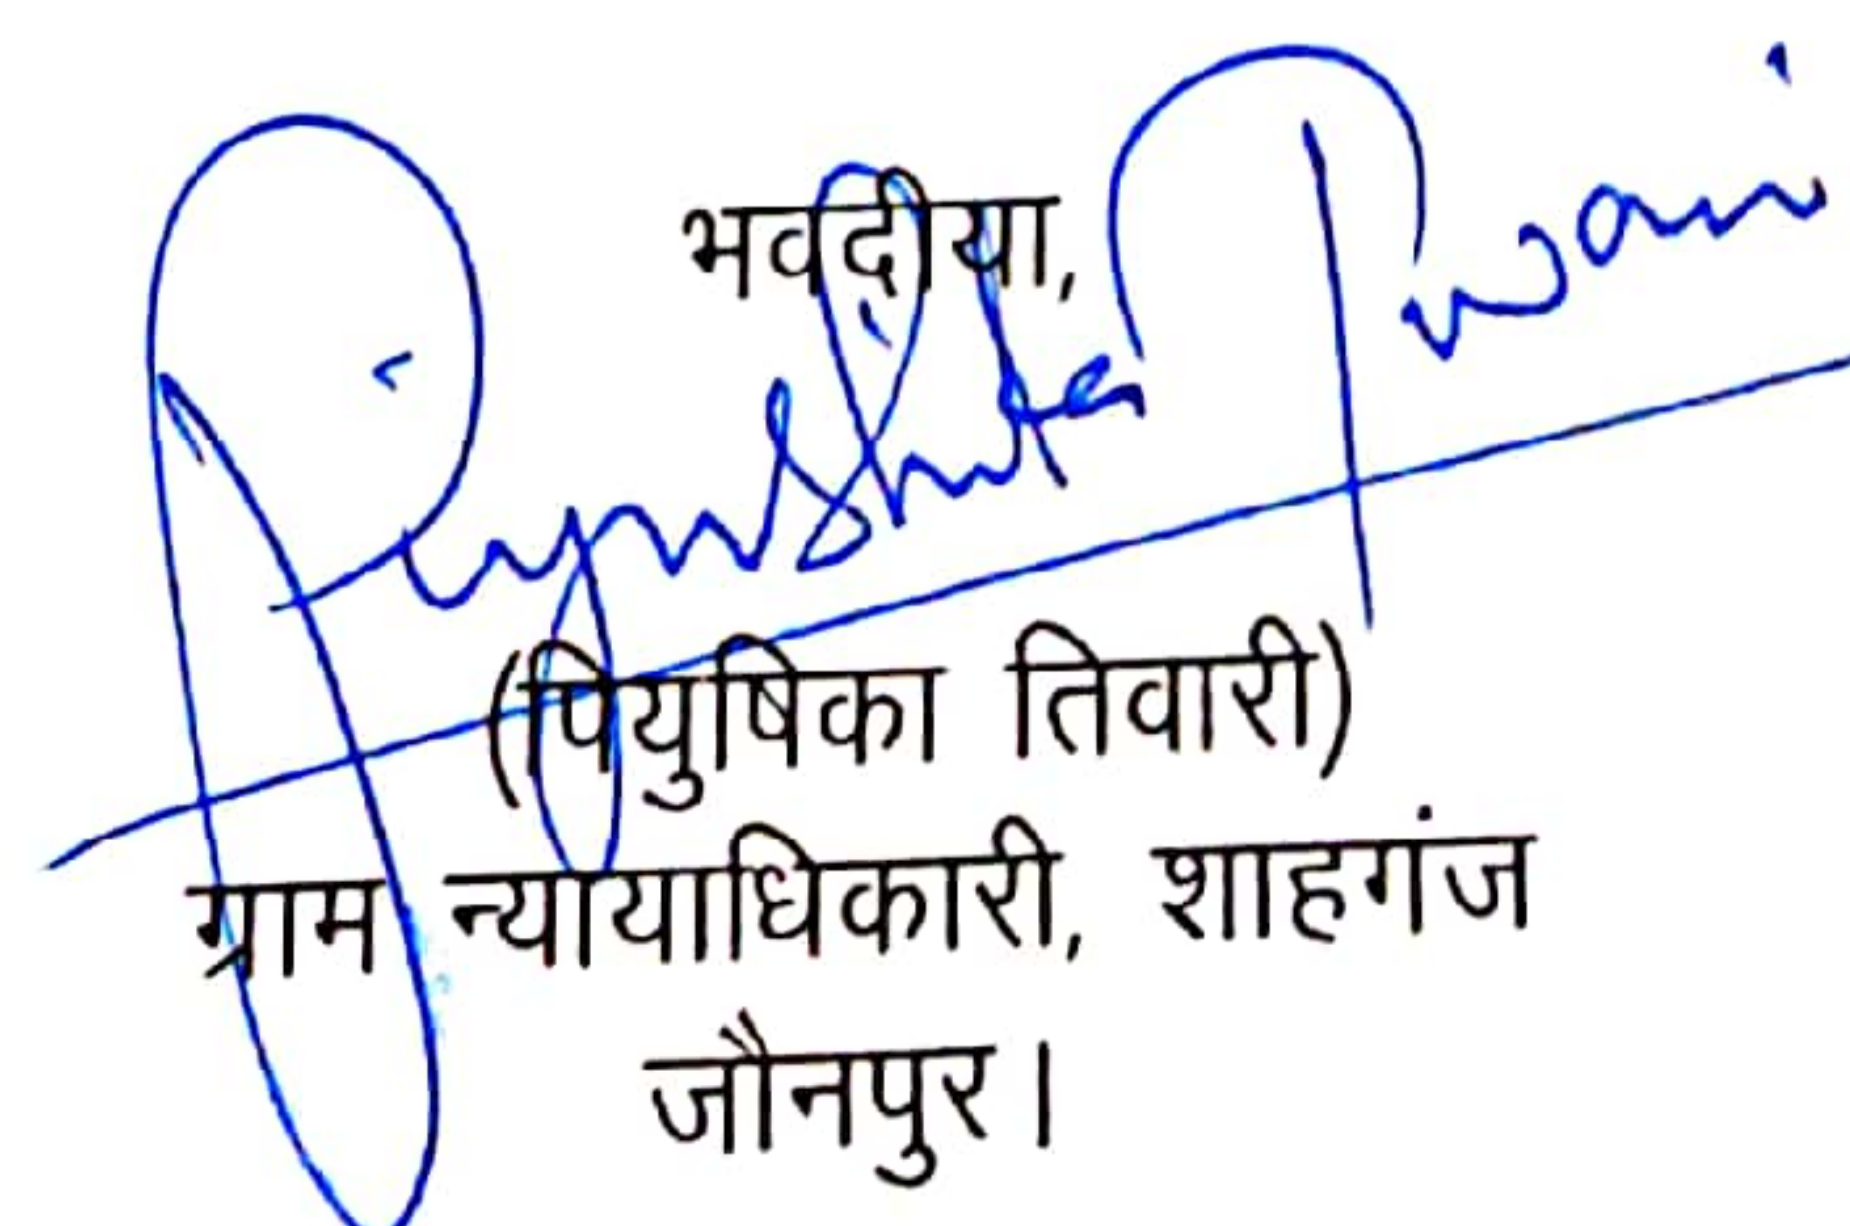 भवदीया,
Piyushika Tiwari
(पियुषिका तिवारी)
ग्राम न्यायाधिकारी, शाहगंज
जौनपुर।